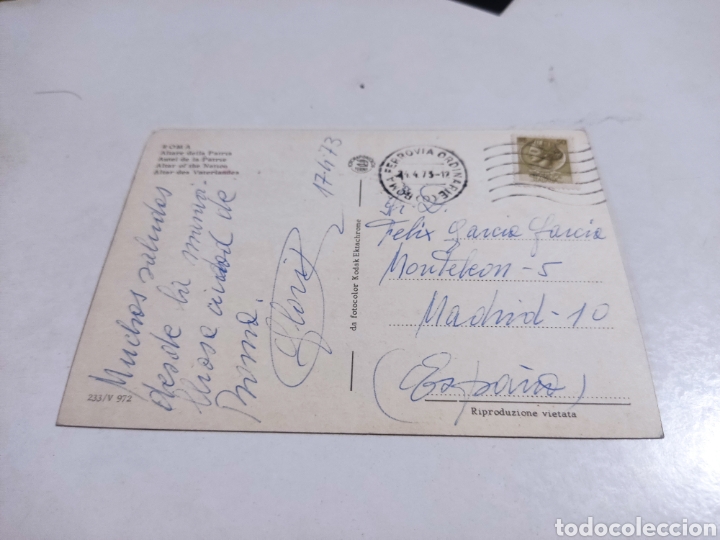 ROMA
Altare della Patria
Autel de la Patrie
Altar of the Nation
Altar des Vaterlandes
17-4-73
Muchos saludos
desde la maravi-
llosa ciudad de
Roma.
233/V 972
da fotocolor Kodak Ektachrome
ROMA FERROVIA ORDINARIE
4.73-19
Sr. D.
Felix Garcia Garcia
Monteleon-5
Madrid-10
(España)
Riproduzione vietata
todocoleccion